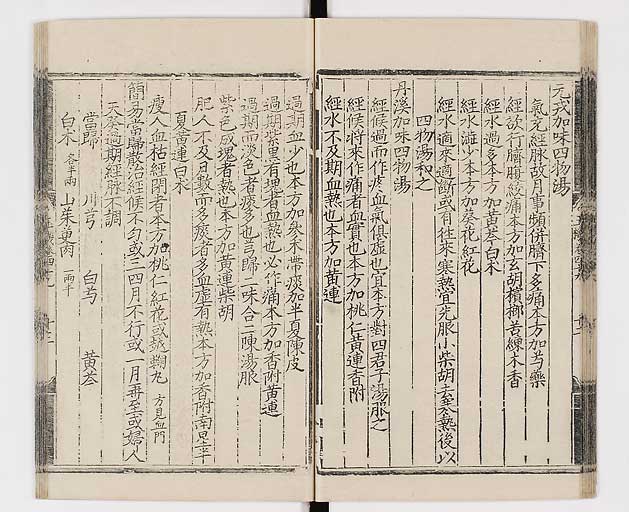 元戎加味四物湯
氣充經脉故月事頻併臍下多痛本方加芍藥
經欲行臍腹絞痛本方加玄胡檳榔苦練木香
經水過多本方加黃芩白木
經水澁少本方加葵花紅花
經水適來適斷或有徃來寒熱宜先服小柴胡去其寒熱後以
四物湯和之
丹溪加味四物湯
經候過而作疼血氣俱虛也宜本方對四君子湯服之
經候將來作痛者血實也本方加桃仁黃連香附
經水不及期血熱也本方加黃連
過期血少也本方加參木帶痰加半夏陳皮
過期紫黑有塊者血熱也必作痛本方加香附黃連
過期而淡色者痰多也芎歸二味合二陳湯服
紫色成塊者熱也本方加黃連柴胡
肥人不及日數而多痰者多血虛有熱本方加香附南星半
夏黃連白木
瘦人血枯經閉者本方加桃仁紅花或越鞠丸 方見血門
簡易當歸散治經候不勻或三四月不行或一月再至或婦人
天癸過期經脉不調
當歸 川芎 白芍 黃芩
白木 各半兩 山茱萸肉 一兩半